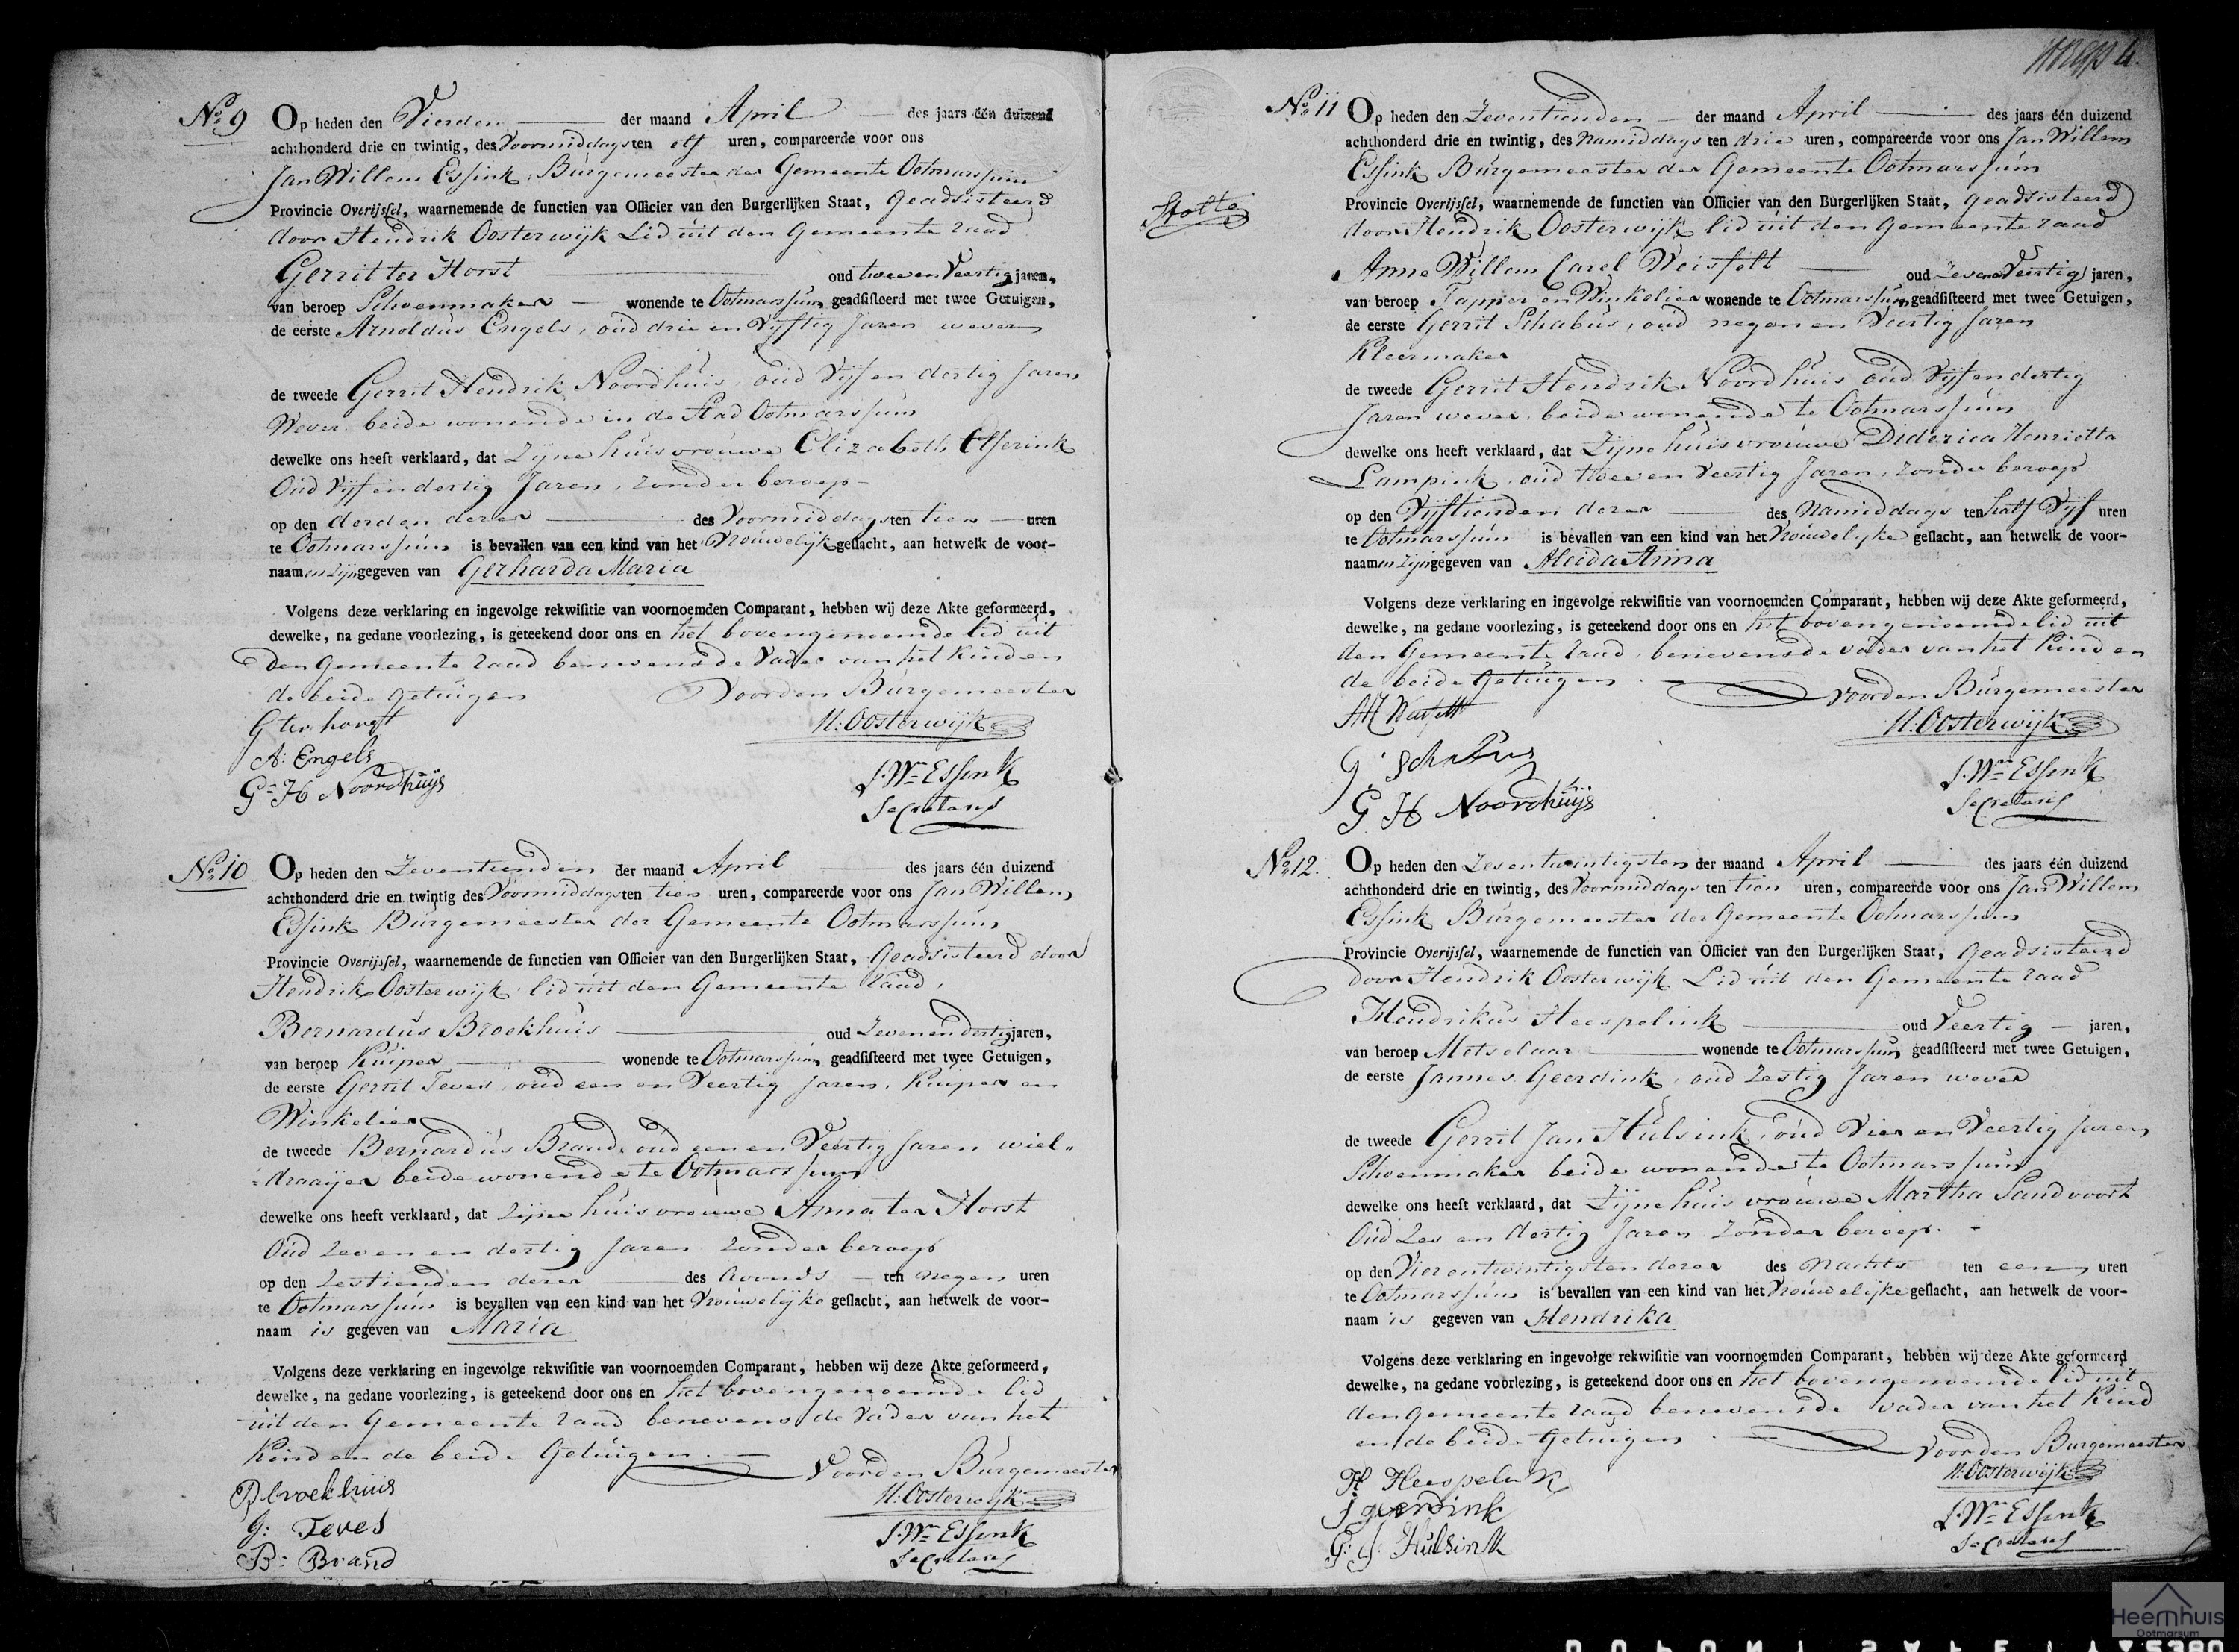 No 9 Op heden den Vierden der maand April des jaars één duizend
achthonderd drie en twintig, des Voormiddags ten elf uren, compareerde voor ons
Jan Willem Essink, Burgemeester der Gemeente Ootmarssum
Provincie Overijssel, waarnemende de functien van Officier van den Burgerlijken Staat, geadsisteerd
door Hendrik Oosterwijk Lid uit den Gemeente raad
Gerrit ter Horst oud twee en Veertig jaren,
van beroep Schoenmaker wonende te Ootmarssum geadsisteerd met twee Getuigen,
de eerste Arnoldus Engels, oud drie en Vijftig Jaren wever
de tweede Gerrit Hendrik Noordhuis, oud Vijf en dertig Jaren
Wever beide wonende in de Stad Ootmarssum
dewelke ons heeft verklaard, dat Zijne huisvrouwe Elizabeth Elferink
Oud Vijf en dertig Jaren, zonder beroep
op den derden dezer des Voormiddags ten tien uren
te Ootmarssum is bevallen van een kind van het Vrouwelijk geslacht, aan hetwelk de voor-
naamen zijn gegeven van Gerharda Maria
Volgens deze verklaring en ingevolge rekwisitie van voornoemden Comparant, hebben wij deze Akte geformeerd,
dewelke, na gedane voorlezing, is geteekend door ons en het bovengenoemde lid uit
den Gemeente raad benevens de Vader van het Kind en
de beide getuigen Voor den Burgemeester
G ter horst H: Oosterwijk
A: Engels
J: Wm Essink
G: H Noordhuijs
Secretaris
No 10 Op heden den Zeventienden der maand April des jaars één duizend
achthonderd drie en twintig des Voormiddags ten tien uren, compareerde voor ons Jan Willem
Essink Burgemeester der Gemeente Ootmarssum
Provincie Overijssel, waarnemende de functien van Officier van den Burgerlijken Staat, Geadsisteerd door
Hendrik Oosterwijk lid uit den Gemeente Raad,
Bernardus Broekhuis oud Zeven en dertig jaren,
van beroep Kuiper wonende te Ootmarssum geadsisteerd met twee Getuigen,
de eerste Gerrit Teves, oud een en Veertig Jaren, Kuiper en
Winkelier
de tweede Bernardus Brand oud een en Veertig Jaren wiel-
draaijer beide wonende te Ootmarssum
dewelke ons heeft verklaard, dat zijne huisvrouwe Anna ter Horst
Oud zeven en dertig Jaren zonder beroep
op den Zestienden dezer des Avonds ten negen uren
te Ootmarssum is bevallen van een kind van het Vrouwelijke geslacht, aan hetwelk de voor-
naam is gegeven van Maria
Volgens deze verklaring en ingevolge rekwisitie van voornoemden Comparant, hebben wij deze Akte geformeerd,
dewelke, na gedane voorlezing, is geteekend door ons en het bovengenoemde lid
uit den Gemeente raad benevens de Vader van het
Kind en de beide Getuigen. Voor den Burgemeester
B broekhuis H: Oosterwijk
G: Teves J. Wm Essink
B: Brand Secretaris
Stolte
No 11 Op heden den Zeventienden der maand April des jaars één duizend
achthonderd drie en twintig, des Namiddags ten drie uren, compareerde voor ons Jan Willem
Essink Burgemeester der Gemeente Ootmarssum
Provincie Overijssel, waarnemende de functien van Officier van den Burgerlijken Staat, geadsisteerd
door Hendrik Oosterwijk lid uit den Gemeente raad
Anne Willem Carel Weisfelt oud Zeven en Veertig jaren,
van beroep Tapper en Winkelier wonende te Ootmarssum geadsisteerd met twee Getuigen,
de eerste Gerrit Schabus, oud negen en Veertig Jaren
Kleermaker
de tweede Gerrit Hendrik Noordhuis oud Vijf en dertig
Jaren wever beide wonende te Ootmarssum
dewelke ons heeft verklaard, dat Zijne huisvrouwe Diderica Henrietta
Lampink, oud twee en Veertig Jaren, zonder beroep
op den Vijftienden dezer des Namiddags ten half Vijf uren
te Ootmarssum is bevallen van een kind van het Vrouwelijke geslacht, aan hetwelk de voor-
naamen zijn gegeven van Aleida Anna
Volgens deze verklaring en ingevolge rekwisitie van voornoemden Comparant, hebben wij deze Akte geformeerd,
dewelke, na gedane voorlezing, is geteekend door ons en het bovengenoemde lid uit
den Gemeente raad, benevens de vader van het Kind en
de beide Getuigen. Voor den Burgemeester
H. Oosterwijk
G Schabus J. Wm Essink
G H Noordhuijs Secretaris
No 12. Op heden den Zesentwintigsten der maand April des jaars één duizend
achthonderd drie en twintig, des Voormiddags ten tien uren, compareerde voor ons Jan Willem
Essink Burgemeester der Gemeente Ootmarssum
Provincie Overijssel, waarnemende de functien van Officier van den Burgerlijken Staat, geadsisteerd
door Hendrik Oosterwijk Lid uit den Gemeente raad
Hendrikus Heespelink oud Veertig jaren,
van beroep Metselaar wonende te Ootmarssum geadsisteerd met twee Getuigen,
de eerste Jannes Geerdink, oud Zestig Jaren wever
de tweede Gerrit Jan Hulsink, oud Vier en Veertig Jaren
Schoenmaker beide wonende te Ootmarssum
dewelke ons heeft verklaard, dat Zijne huisvrouwe Martha Sandvoort
Oud Zes en dertig Jaren Zonder beroep.
op den Vierentwintigsten dezer des Nachts ten een uren
te Ootmarssum is bevallen van een kind van het Vrouwelijke geslacht, aan hetwelk de voor-
naam is gegeven van Hendrika
Volgens deze verklaring en ingevolge rekwisitie van voornoemden Comparant, hebben wij deze Akte geformeerd
dewelke, na gedane voorlezing, is geteekend door ons en het bovengenoemde lid uit
den gemeente raad benevens de vader van het Kind
en de beide Getuigen. Voor den Burgemeester
H Heespelink H: Oosterwijk
J geerdink J. Wm Essink
G: J: Hulsink Secretaris
Heemhuis
Ootmarsum